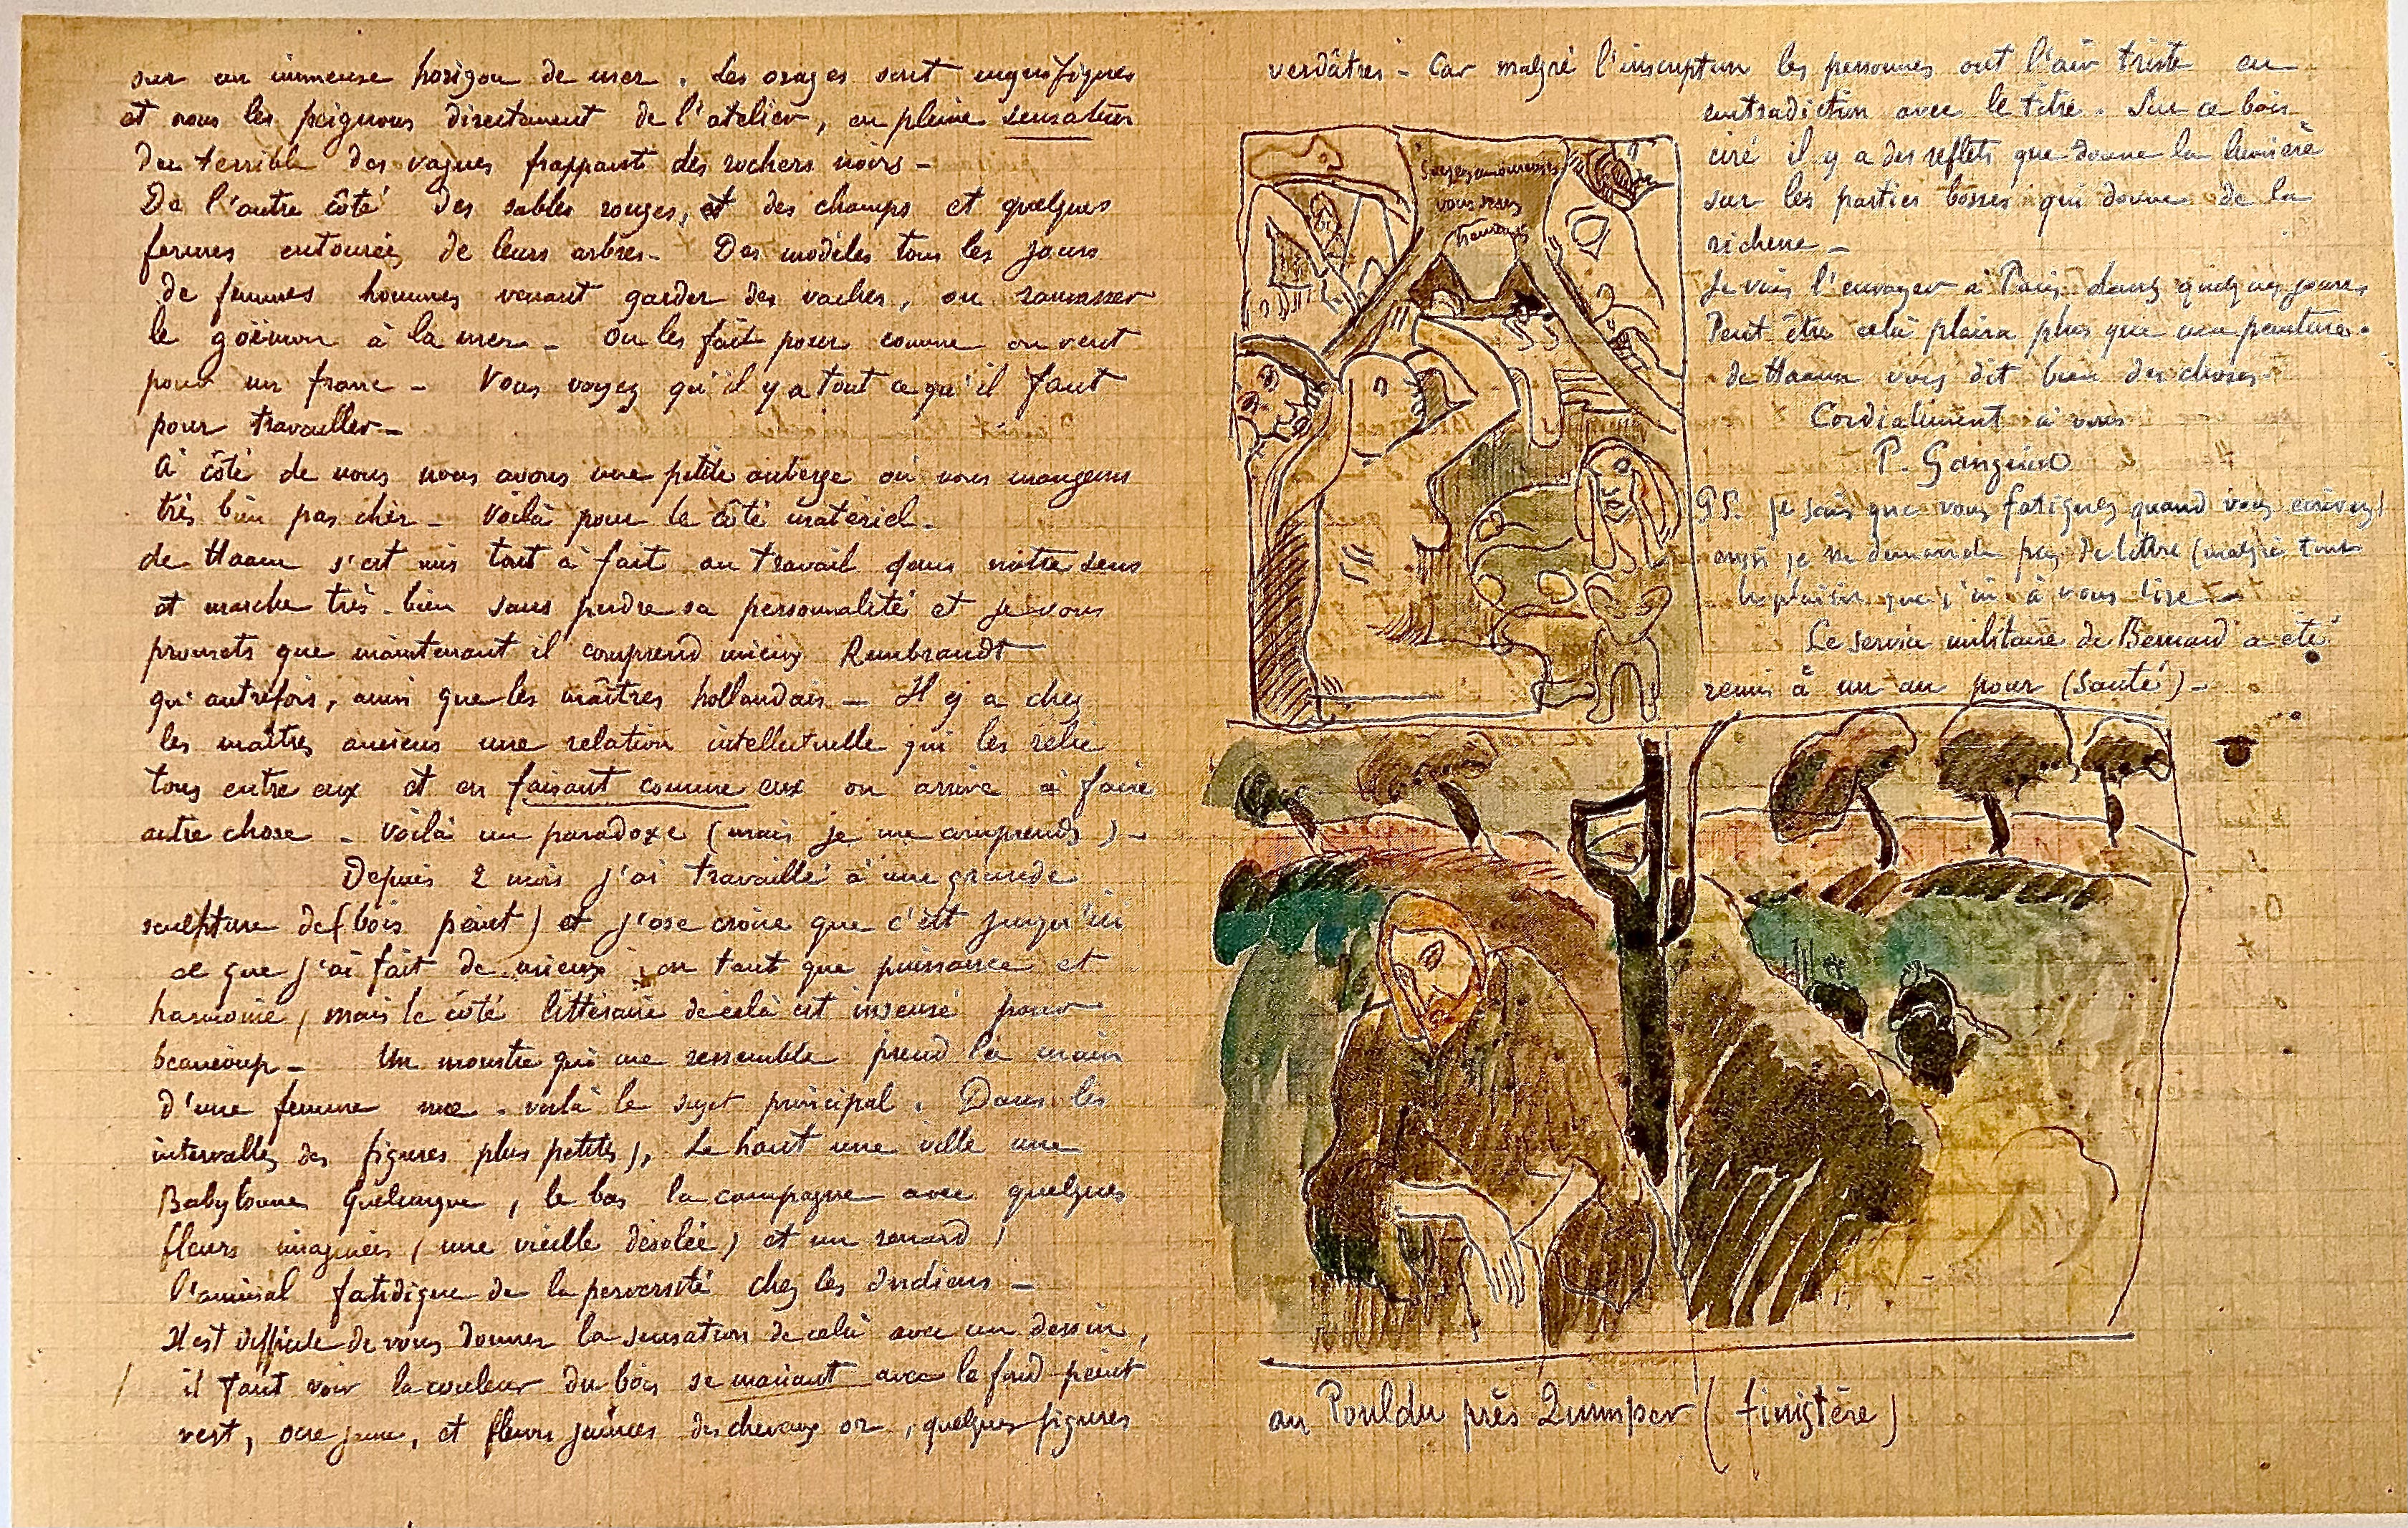 sur un immense horizon de mer. Les orages sont magnifiques
et nous les peignons directement de l'atelier, en pleine sensation
du terrible des vagues frappant des rochers noirs -
De l'autre côté des sables rouges, et des champs et quelques
fermes entourées de leurs arbres - Des modèles tous les jours
de femmes hommes venant garder des vaches, ou ramasser
le goëmon à la mer - On les fait poser comme on veut
pour un franc - Vous voyez qu'il y a tout ce qu'il faut
pour travailler -
à côté de nous nous avons une petite auberge où nous mangeons
très bien pas cher - Voilà pour le côté matériel -
de Haan s'est mis tout à fait au travail dans notre sens
et marche très bien sans perdre sa personnalité et je vous
promets que maintenant il comprend mieux Rembrandt
qu'autrefois, ainsi que les maîtres hollandais - Il y a chez
les maîtres anciens une relation intellectuelle qui les relie
tous entre eux et en faisant comme eux on arrive à faire
autre chose - Voilà un paradoxe (mais je me comprends) -
Depuis 2 mois j'ai travaillé à une grande
sculpture de (bois peint) et j'ose croire que c'est jusqu'ici
ce que j'ai fait de mieux en tant que puissance et
harmonie, mais le côté littéraire de celà est insensé pour
beaucoup - Un monstre qui me ressemble prend la main
d'une femme nue - voilà le sujet principal. Dans les
intervalles des figures plus petites, Le haut une ville une
Babylonne quelconque, le bas la campagne avec quelques
fleurs imaginées (une vieille désolée) et un renard,
l'animal fatidique de la perversité chez les Indiens -
Il est difficile de vous donner la sensation de celà avec un dessin,
il faut voir la couleur du bois se mariant avec le fond peint
vert, ocre jaune, et fleurs jaunes des cheveux or, quelques figures
verdâtres - Car malgré l'inscription les personnes ont l'air triste en
contradiction avec le titre. Sur ce bois
ciré il y a des reflets que donne la lumière
sur les parties bosses qui donne de la
richesse -
Je vais l'envoyer à Paris dans quelques jours
Peut être celà plaira plus que ma peinture.
de Haan vous dit bien des choses -
Cordialement à vous
P. Gauguin
PS. Je sais que vous fatiguez quand vous écrivez
aussi je ne demande pas de lettre (malgré tout
le plaisir que j'ai à vous lire -
Le service militaire de Bernard a été
remis à un an pour (santé) -
Soyez amoureuses
vous serez
heureuses
au Pouldu près Quimper (Finistère)